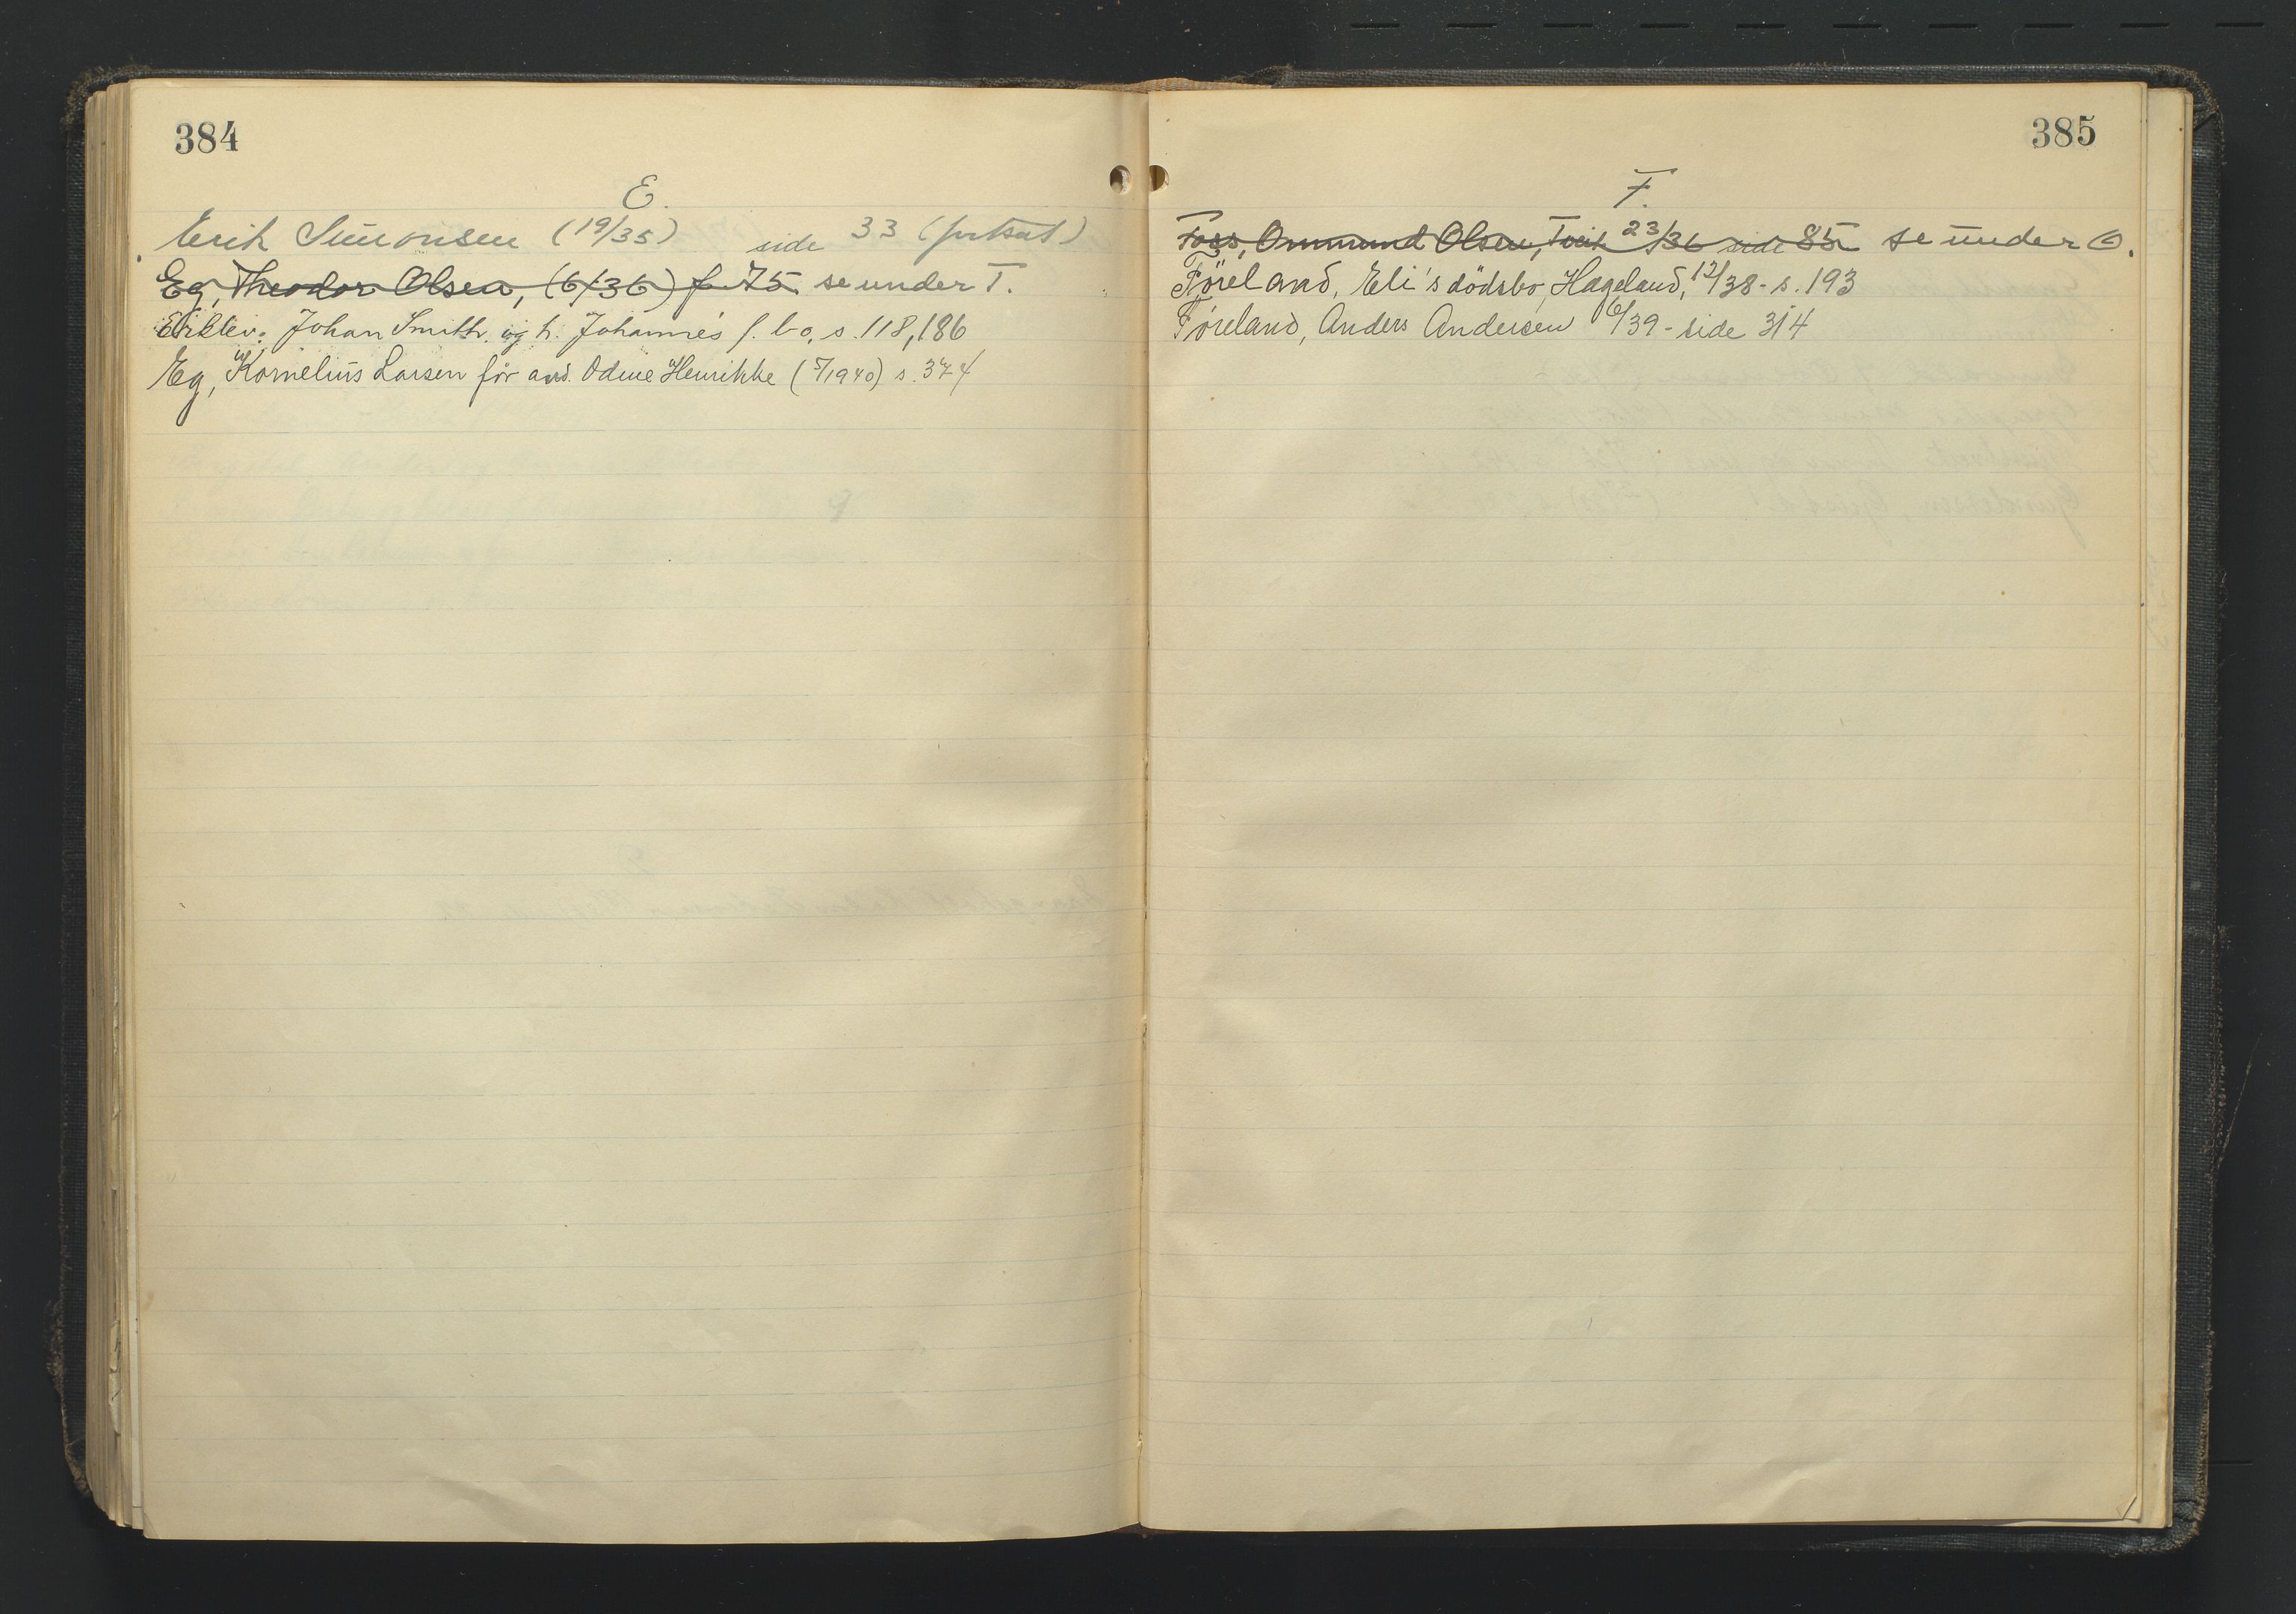 384
E.
Erik Simonsen (19/35) side 33 (fortsat)
Eg, Theodor Olsen, (6/36) f. 75 se under T.
Johan Smith og h. Johanne's f. bo, s. 118, 186
Eg, Kornelius Larsen för and. Odine Henrikke (5/1940) s. 374
385
F.
Foss, Ommund Olsen, Tveit 23/36 side 85 se under O.
Föreland, Eli's dödsbo, Hageland, 12/38 - s. 193
Föreland, Anders Andersen 6/39 - side 314